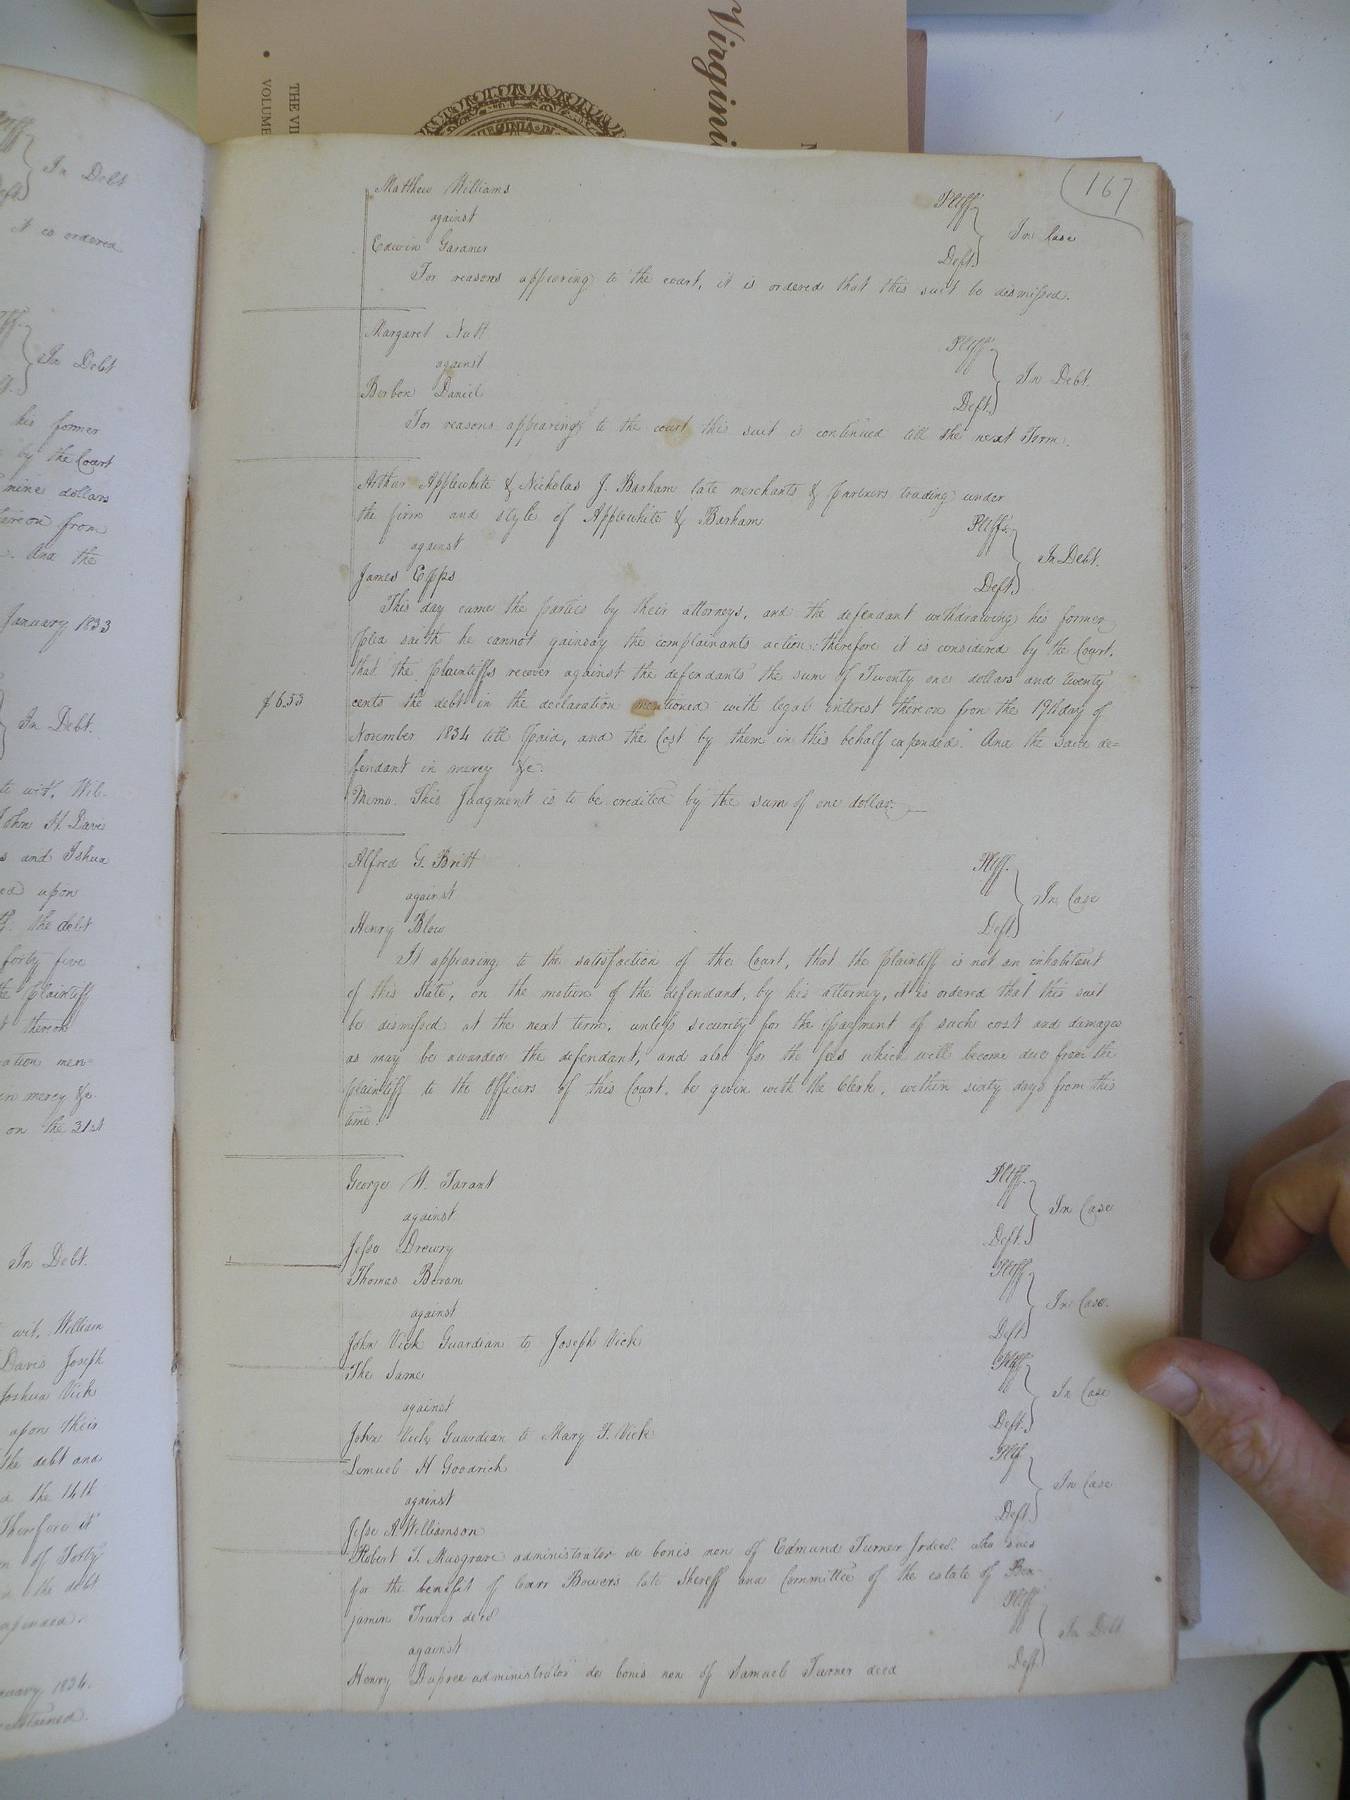 Virgini
THE VI
VOLUME
VIRGINIA
167
In Debt
it is ordered
In Debt
his former
by the Court
nine dollars
thereon from
And the
January 1833
In Debt.
to wit, Wil-
John H. Davis
s and Joshua
upon
the debt
forty five
the plaintiff
thereon
ration men=
in mercy &c.
on the 31st
In Debt.
wit, William
Davis Joseph
Joshua Vick
upon their
the debt and
the 14th
Therefore it
of Forty
in the debt
1834.
Matthew Williams Pltff.
against In Case
Edwin Gardner Deft.
For reasons appearing to the court, it is ordered that this suit be dismissed.
Margaret Nutt Pltff.
against In Debt.
Berbon Daniel Deft.
For reasons appearing to the court this suit is continued till the next Term.
Arthur Applewhite & Nicholas J. Barham late merchants & partners trading under
the firm and style of Applewhite & Barham Pltffs.
against In Debt.
James Epps Deft.
This day came the parties by their attorneys, and the defendant withdrawing his former
plea saith he cannot gainsay the complainants action: therefore it is considered by the Court,
that the plaintiffs recover against the defendants the sum of Twenty one dollars and twenty
$6.53 cents the debt in the declaration mentioned with legal interest thereon from the 19th day of
November 1834 till paid, and the Cost by them in this behalf expended. And the said de=
fendant in mercy &c.
Memo. This Judgment is to be credited by the sum of one dollar.
Alfred G. Britt Pltff.
against In Case
Henry Blow Deft
It appearing to the satisfaction of the Court, that the plaintiff is not an inhabitant
of this State, on the motion of the defendant, by his attorney, it is ordered that this suit
be dismissed at the next term, unless security for the payment of such cost and damages
as may be awarded the defendant, and also for the fees which will become due from the
plaintiff to the Officers of this Court, be given with the Clerk, within sixty days from this
time.
George W. Tarant Pltff.
against In Case
Jesse Drewry Deft.
Thomas Beram Pltff
against In Case.
John Vick Guardian to Joseph Vick Deft
The Same Pltff
against In Case
John Vick Guardian to Mary F. Vick Deft.
Lemuel H Goodrich Pltff
against In Case
Jesse A Williamson Deft
Robert T. Musgrave administrator de bonis non of Edmund Turner Jr decd. who sues
for the benefit of Carr Bowers late Sheriff and Committee of the estate of Ben-
jamin Turner decd Pltff
against In Debt
Henry Dupree administrator de bonis non of Samuel Turner decd Deft.